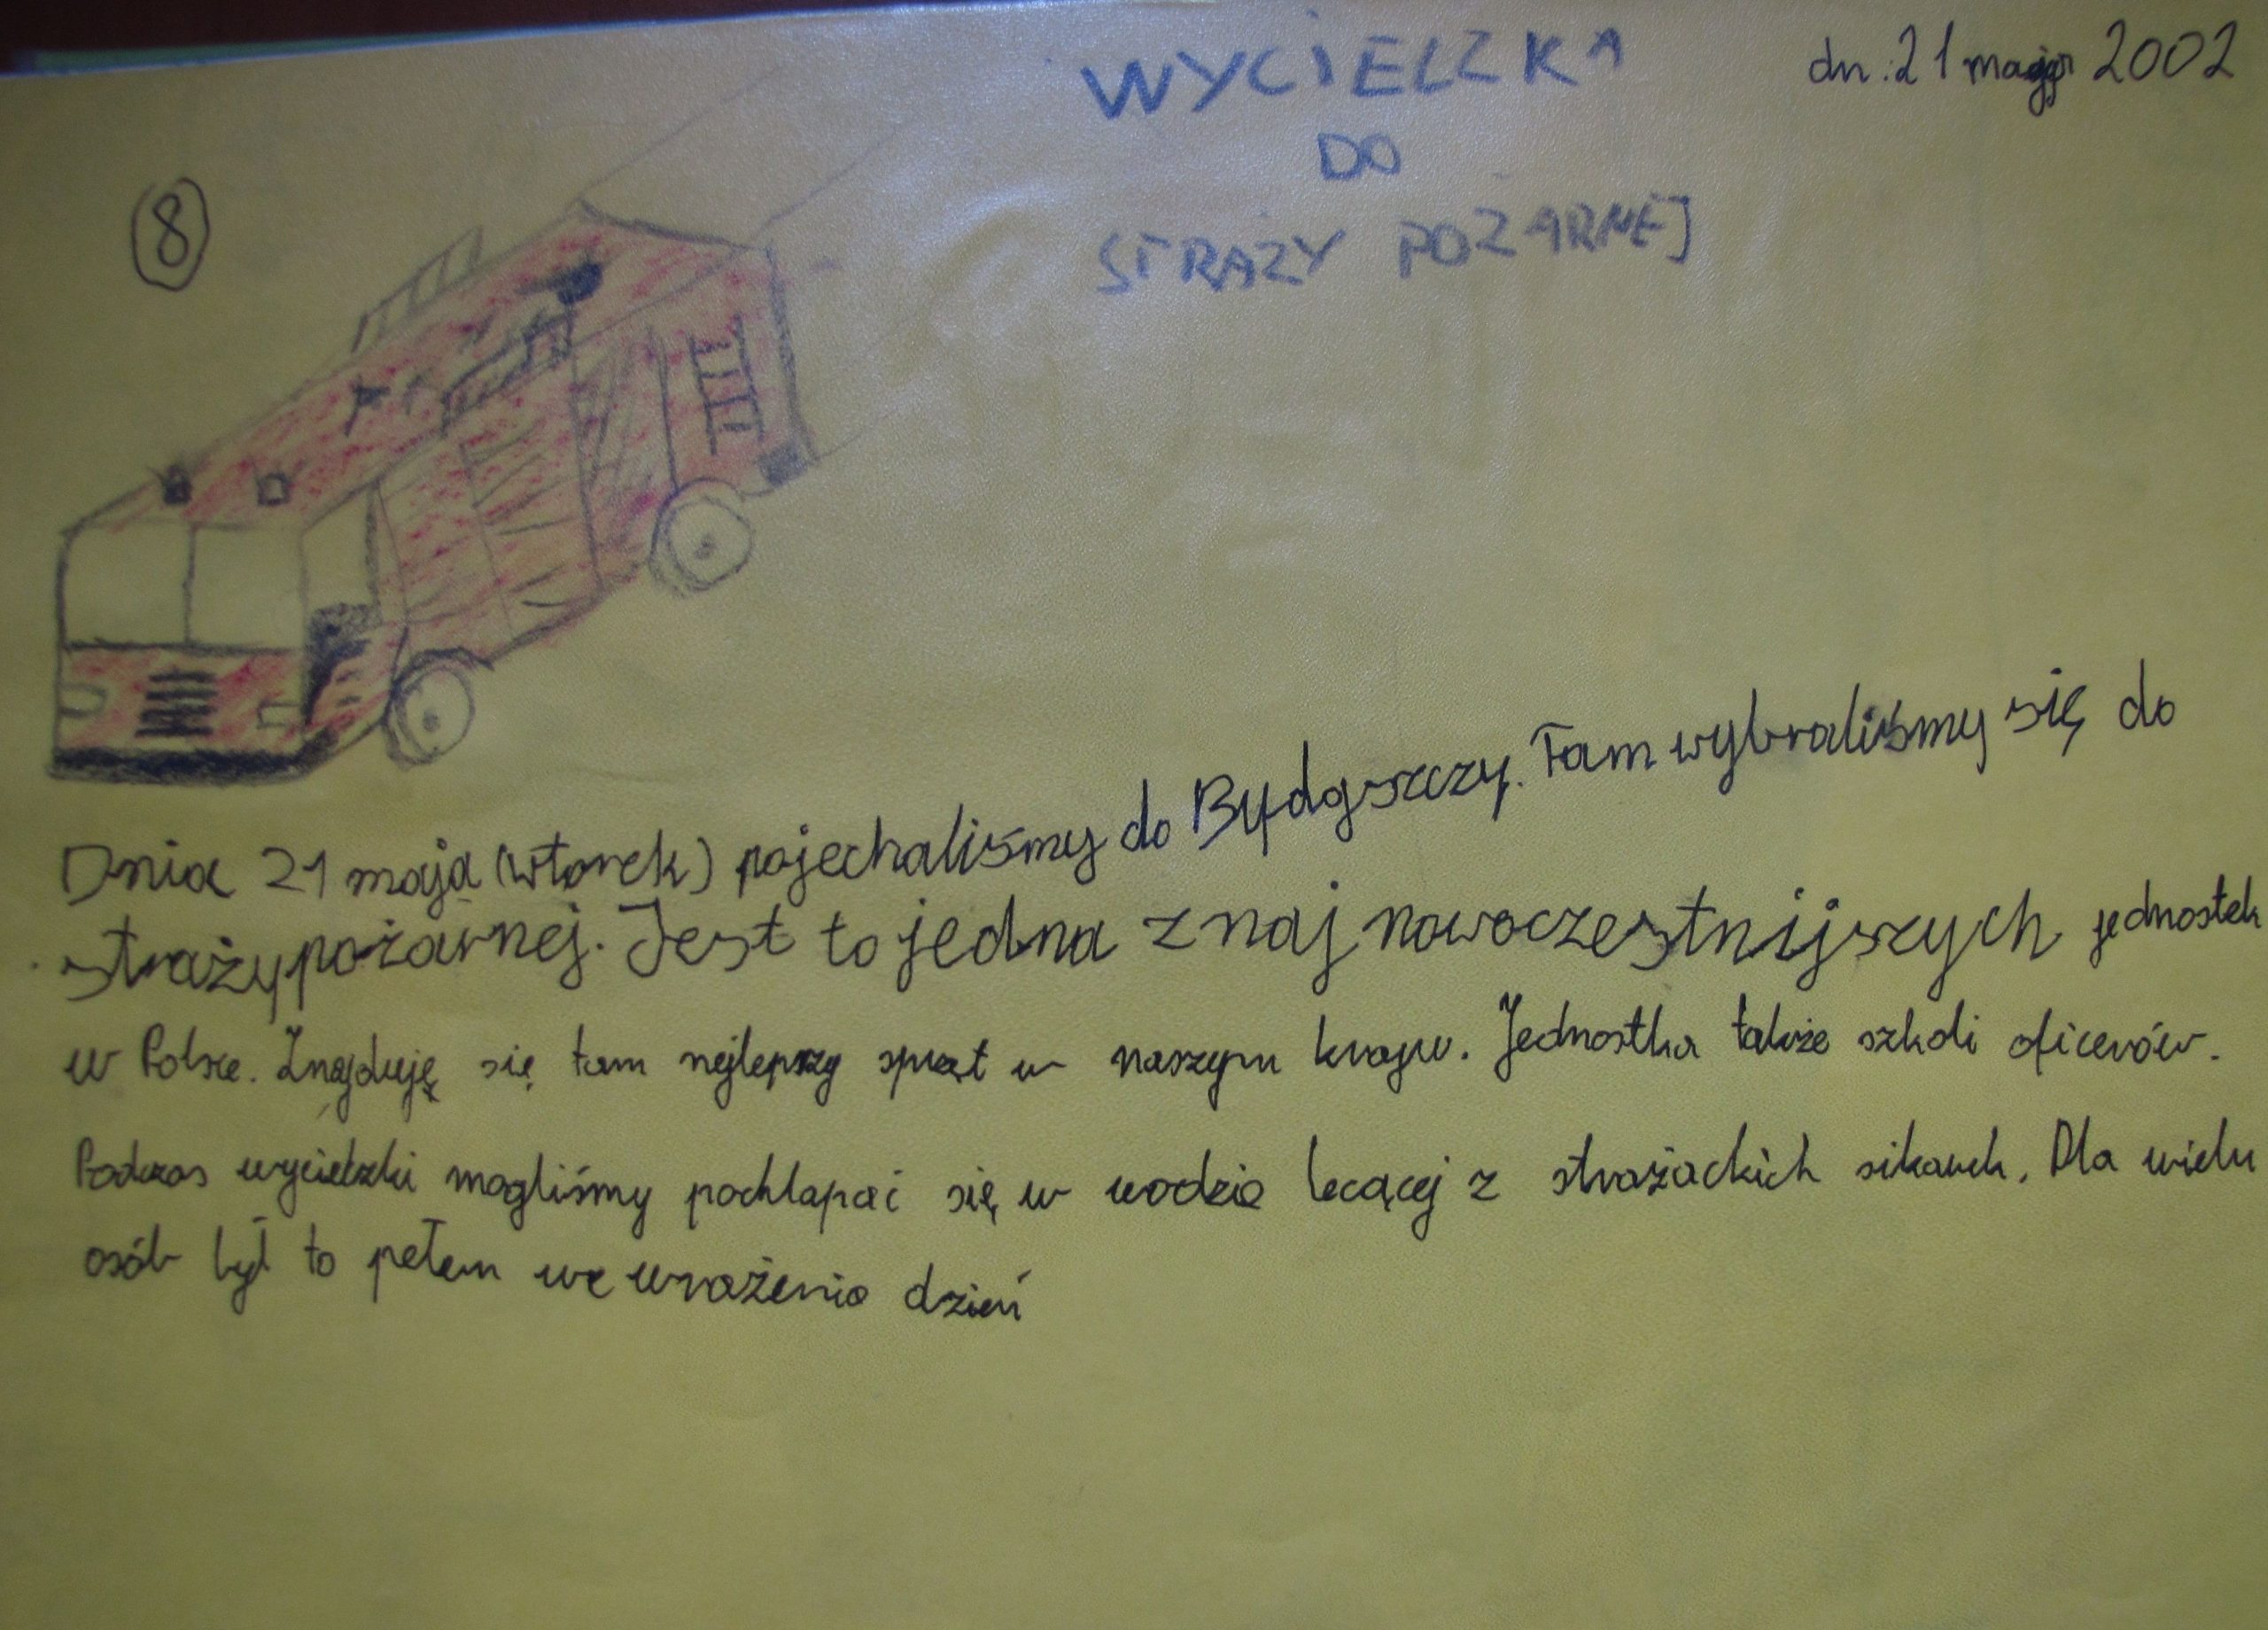 WYCIECZKA
dn. 21 maja 2002
DO
8
STRAŻY POŻARNEJ
Dnia 21 maja (wtorek) pojechaliśmy do Bydgszczy. Tam wybraliśmy się do
straży pożarnej. Jest to jedna z naj nowoczestnijszych jednostek
w Polsce. Znajduję się tam nejlepszy sprzęt w naszym kraju. Jednostka także szkoli oficerów.
Podczas wycieczki mogliśmy pochlapać się w wodzie lecącej z strażackich sikawek. Dla wielu
osób był to pełen we wrażenia dzień